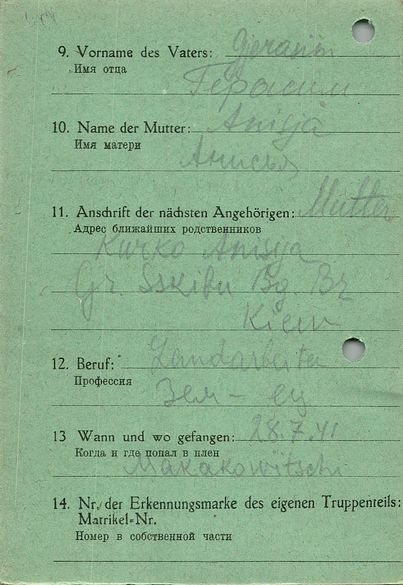 9. Vorname des Vaters: Gjerasim
Имя отца
Герасим
10. Name der Mutter: Anisja
Имя матери
Анисья
11. Anschrift der nächsten Angehörigen: Mutter
Адрес ближайших родственников
Kurko Anisja
Gr. Sskibu Bg. Br
Kiew
12. Beruf: Landarbeiter
Профессия
Зем-ец
13 Wann und wo gefangen: 28.7.41
Когда и где попал в плен
Makakowitschi
14. Nr. der Erkennungsmarke des eigenen Truppenteils:
Matrikel-Nr.
Номер в собственной части